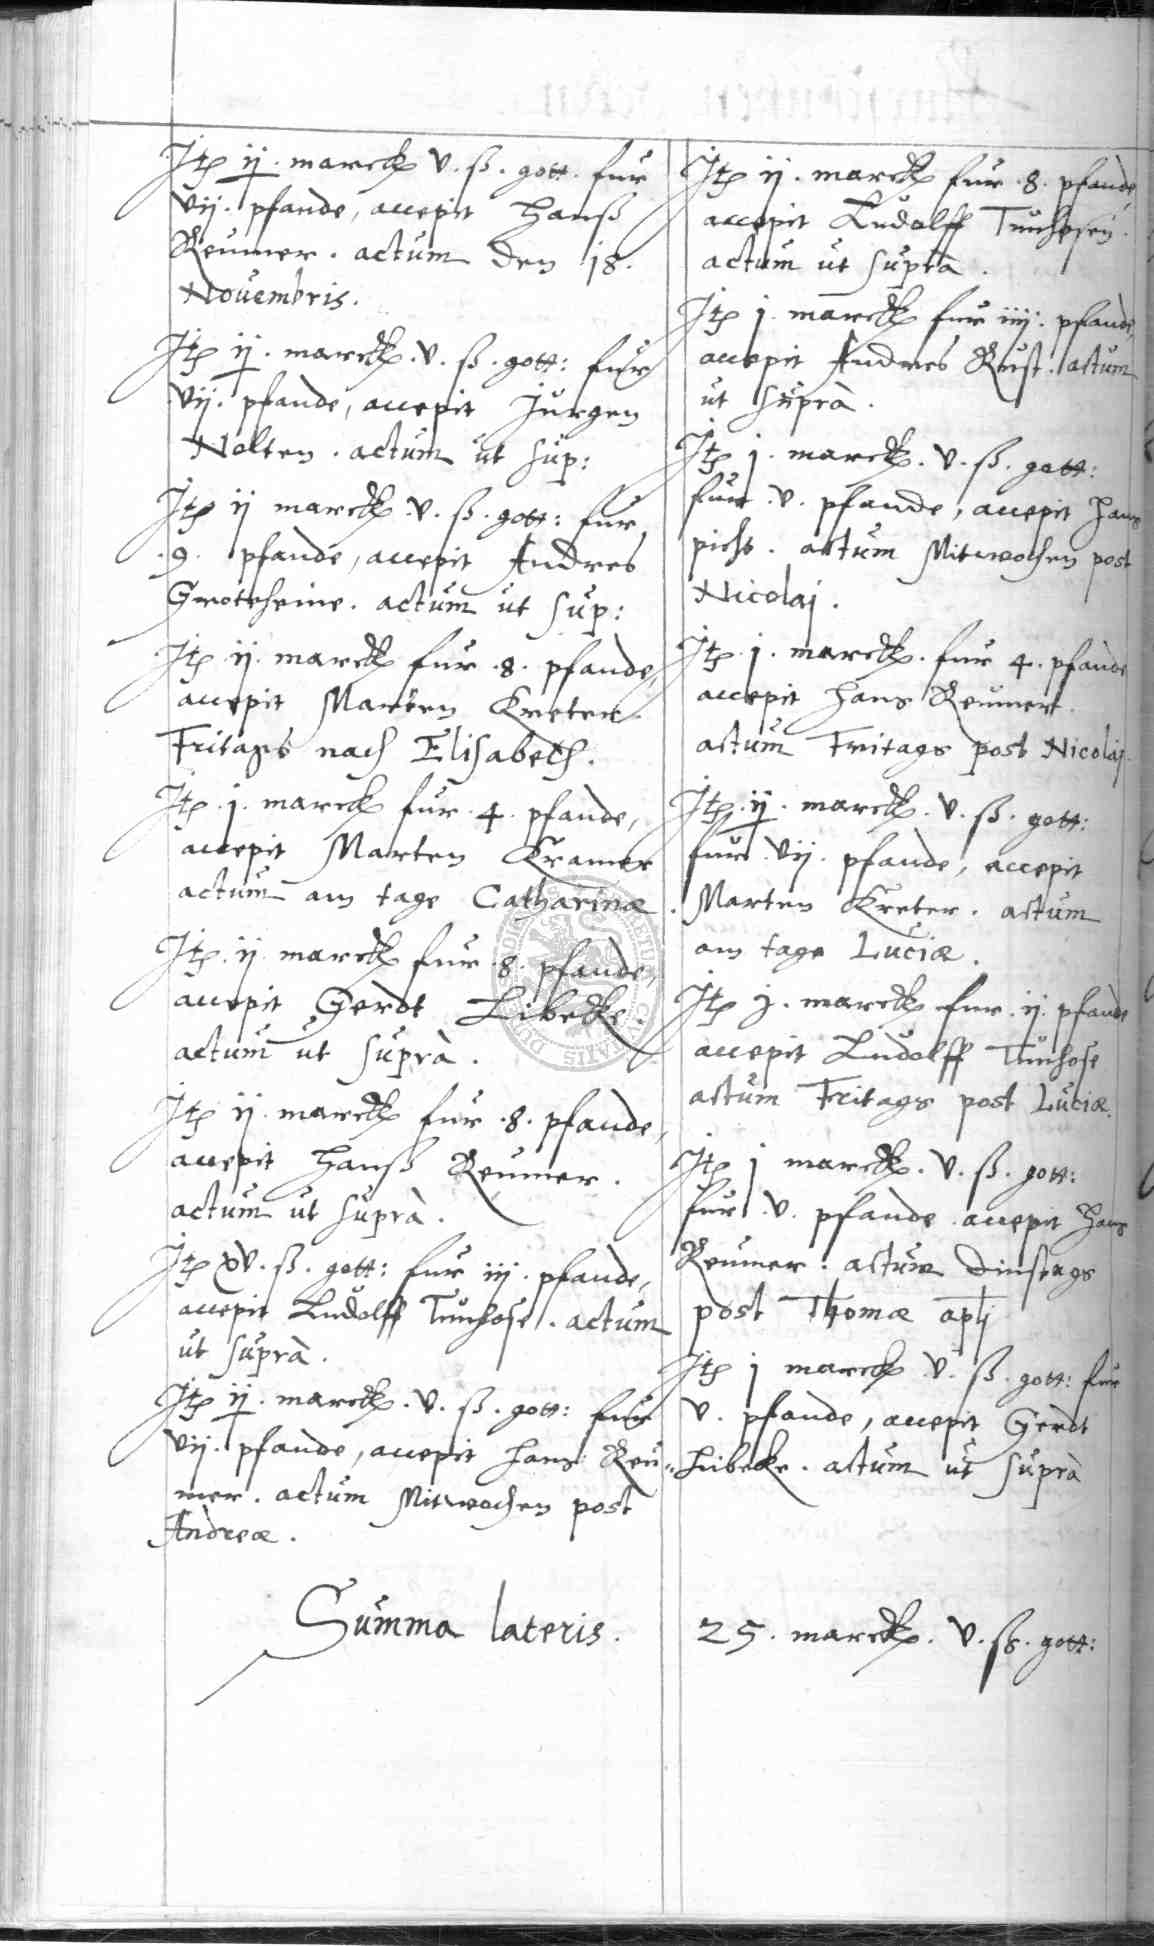 Jtꝑ ij. marck v. ß. gott. fur
vij. pfande, accepit Hanß
Reumer. actum den 18.
Novembris.
Jtꝑ ij. marck. v. ß. gott: fur
vij. pfande, accepit Jurgen
Nolten. actum ut sup:
Jtꝑ ij marck v. ß. gott: fur
.9. pfande, accepit Andres
Grotheine. actum ut sup:
Jtꝑ ij. marck fur .8. pfande,
accepit Marten Kreter
Fritags nach Elisabeth.
Jtꝑ .j. marck fur .4. pfande,
accepit Marten Kramer
actum am tage Catharinæ.
Jtꝑ. ij marck fur .8. pfande
accepit Gerdt Libecke.
actum ut suprà.
Jtꝑ ij. marck fur .8. pfande,
accepit Hanß Reumer.
actum ut suprà.
Jtꝑ xv. ß. gott: fur iij. pfande,
accepit Ludolff Tunhose. actum
ut suprà.
Jtꝑ ij. marck. v. ß. gott: fur
vij. pfande, accepit Hans Reu=
mer. actum Mitwochen post
Andreæ.
Jtꝑ ij. marck fur .8. pfande,
accepit Ludolff Tunhosen.
actum ut suprà.
Jtꝑ j. marck fur iiij. pfande,
accepit Andres Rust. actum
ut suprà.
Jtꝑ j. marck. v. ß. gott:
fur .v. pfande, accepit Hans
picht. actum Mitwochen post
Nicolaj.
Jtꝑ .j. marck. fur 4. pfande
accepit Hans Reumer.
actum Fritags post Nicolaj.
Jtꝑ. ij. marck. v. ß. gott:
fur vij. pfande, accepit
Marten Kreter. actum
am tage Luciæ.
Jtꝑ j. marck fur .ij. pfande
accepit Ludolff Tunhose
actum Fritags post Luciæ.
Jtꝑ j marck. v. ß. gott:
fur .v. pfande accepit Hans
Reumer. actum Dinstags
post Thomæ aptj
Jtꝑ j marck v. ß. gott: fur
v. pfande, accepit Gerdt
Libecke. actum ut suprà
Summa lateris. 25. marck. v. ß. gott: